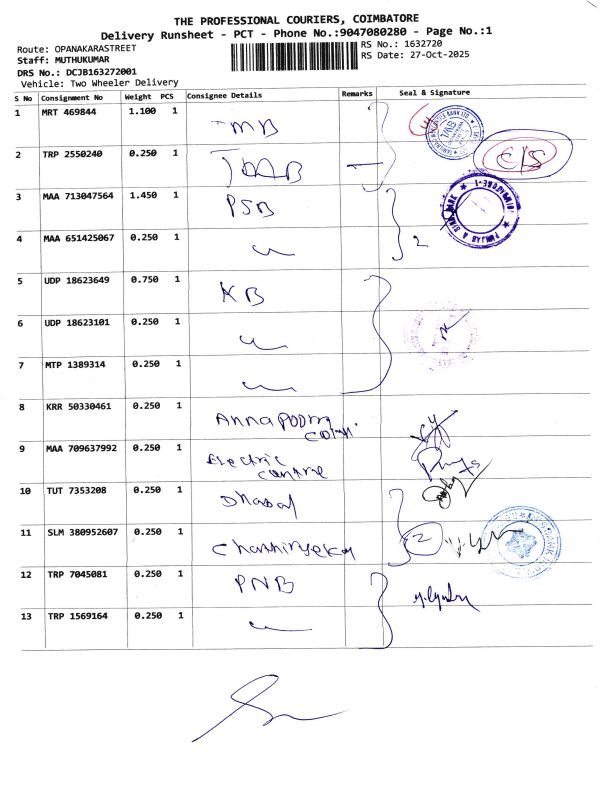 THE PROFESSIONAL COURIERS, COIMBATORE
Delivery Runsheet - PCT - Phone No.:9047080280 - Page No.:1
Route: OPANAKARASTREET
RS No.: 1632720
Staff: MUTHUKUMAR
RS Date: 27-Oct-2025
DRS No.: DCJB163272001
Vehicle: Two Wheeler Delivery
S No Consignment No Weight PCS Consignee Details Remarks Seal & Signature
1 MRT 469844 1.100 1 TMB
2 TRP 2550240 0.250 1
3 MAA 713047564 1.450 1 PSB
4 MAA 651425067 0.250 1 2
5 UDP 18623649 0.750 1 KB
6 UDP 18623101 0.250 1
7 MTP 1389314 0.250 1
8 KRR 50330461 0.250 1
9 MAA 709637992 0.250 1 Electric
centre
10 TUT 7353208 0.250 1
11 SLM 380952607 0.250 1 2
12 TRP 7045081 0.250 1 PNB
13 TRP 1569164 0.250 1